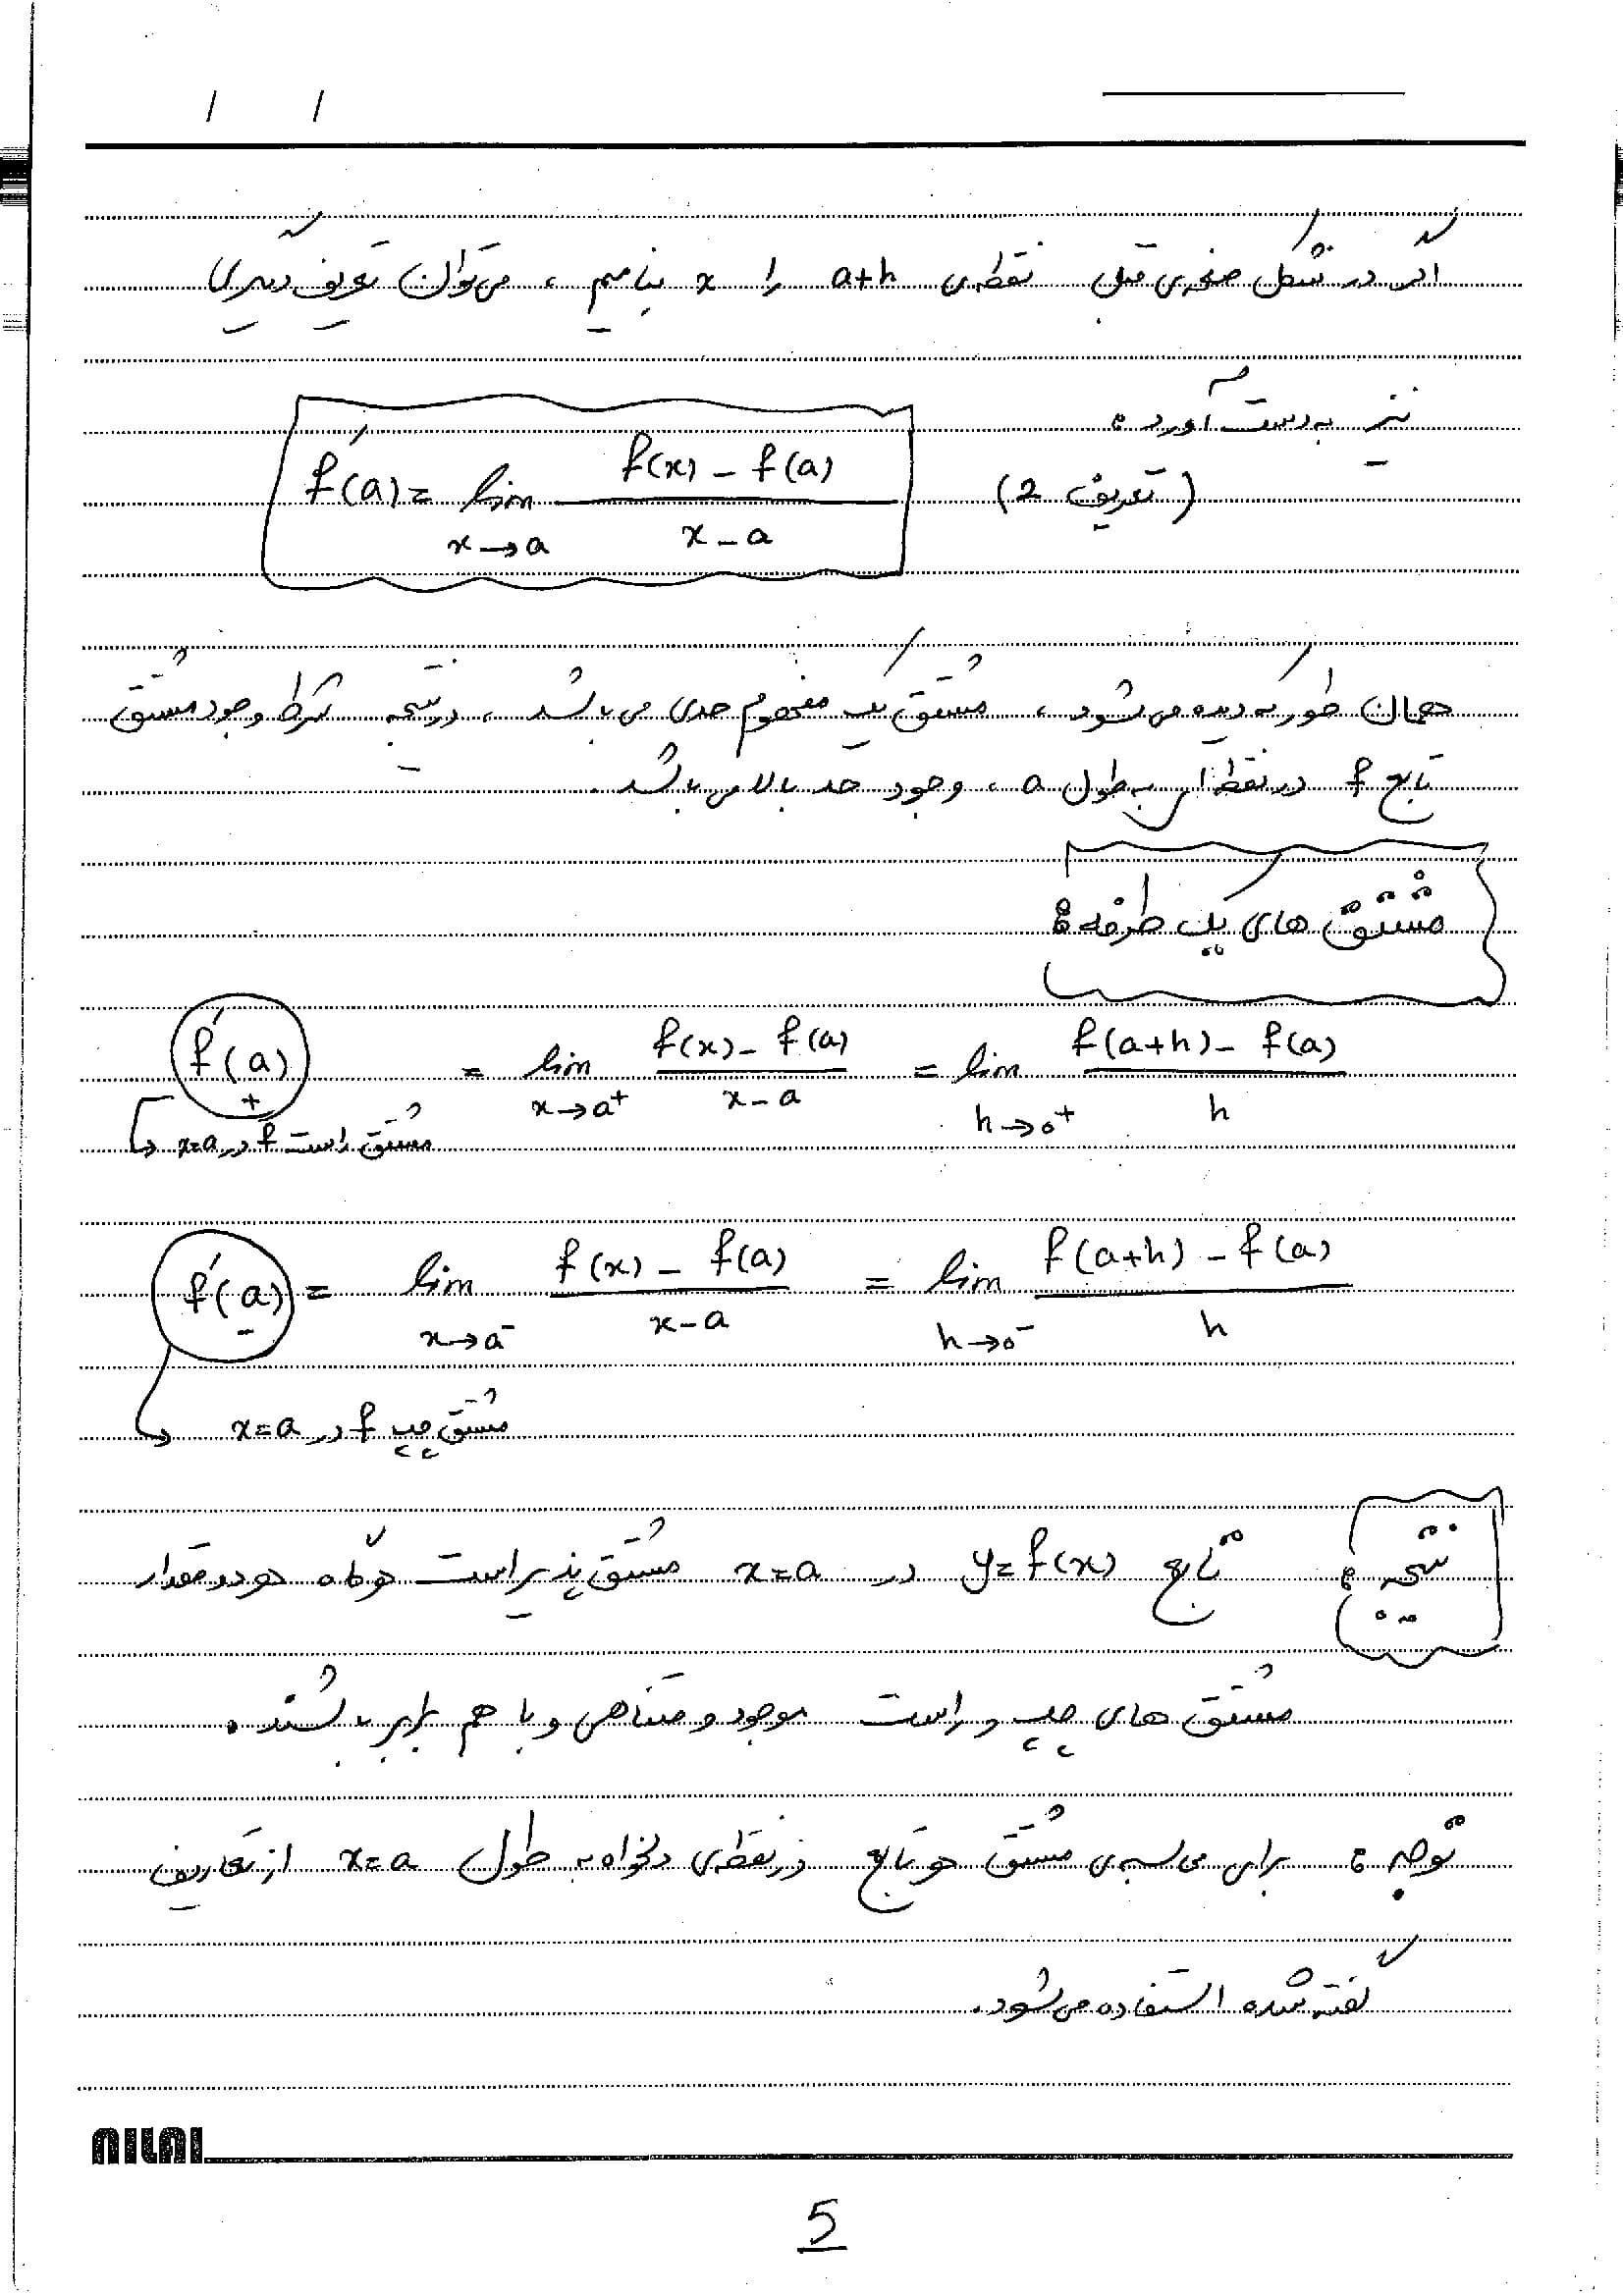 اگر در شکل صفحه‌ی قبل نقطه‌ی a+h را x بنامیم ، می‌توان تعریف دیگری
نیز به‌دست آورد :
(تعریف 2) f'(a) = lim x→a (f(x) - f(a)) / (x - a)
همان طور که دیده می‌شود ، مشتق یک مفهوم حدی می‌باشد ، در نتیجه شرط وجود مشتق
تابع f در نقطه‌ای به طول a ، وجود حد بالا می‌باشد .
مشتق های یک طرفه :
f'₊(a) = lim x→a⁺ (f(x) - f(a)) / (x - a) = lim h→0⁺ (f(a+h) - f(a)) / h
مشتق راست f در x=a
f'₋(a) = lim x→a⁻ (f(x) - f(a)) / (x - a) = lim h→0⁻ (f(a+h) - f(a)) / h
مشتق چپ f در x=a
نتیجه : تابع y=f(x) در x=a مشتق پذیر است هرگاه هر دو مقدار
مشتق های چپ و راست موجود و متناهی و با هم برابر باشند .
توجه : برای محاسبه‌ی مشتق هر تابع در نقطه‌ی دلخواه به طول x=a از تعاریف
گفته شده استفاده می‌شود .
NILAI
5